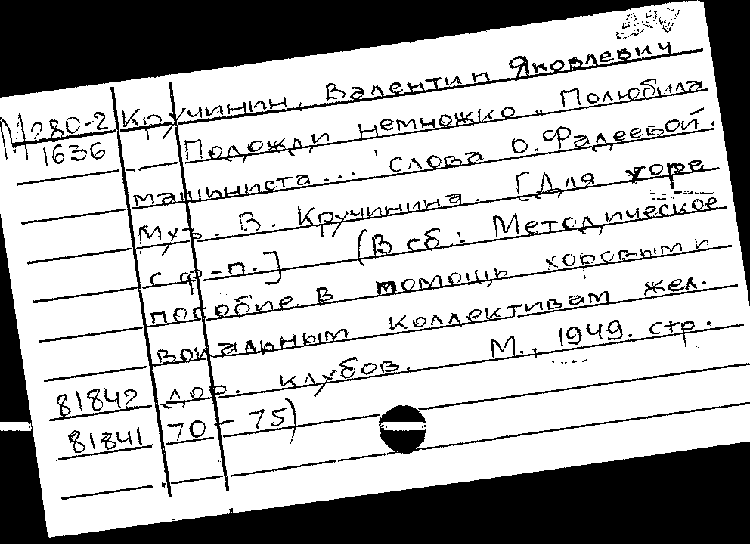 М280-2 Кручинин, Валентин Яковлевич
1636 Подожди немножко. Полюбила
машиниста... Слова О. Фадеевой.
Муз. В. Кручинина. [Для хора
с ф-п.] (В сб: Методическое
пособие в помощь хоровым и
вокальным коллективам жел.
81842 дор. клубов. М., 1949. стр.
81841 70-75)